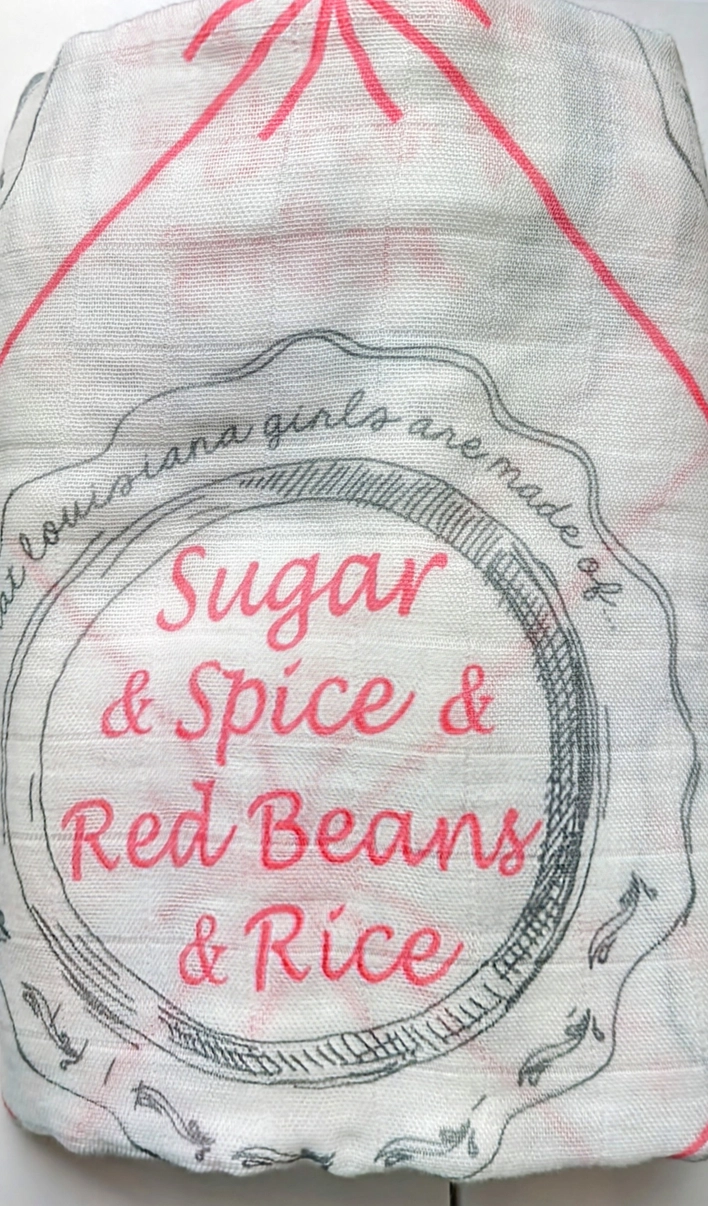 louisiana girls are made of...
Sugar
& Spice &
Red Beans
& Rice